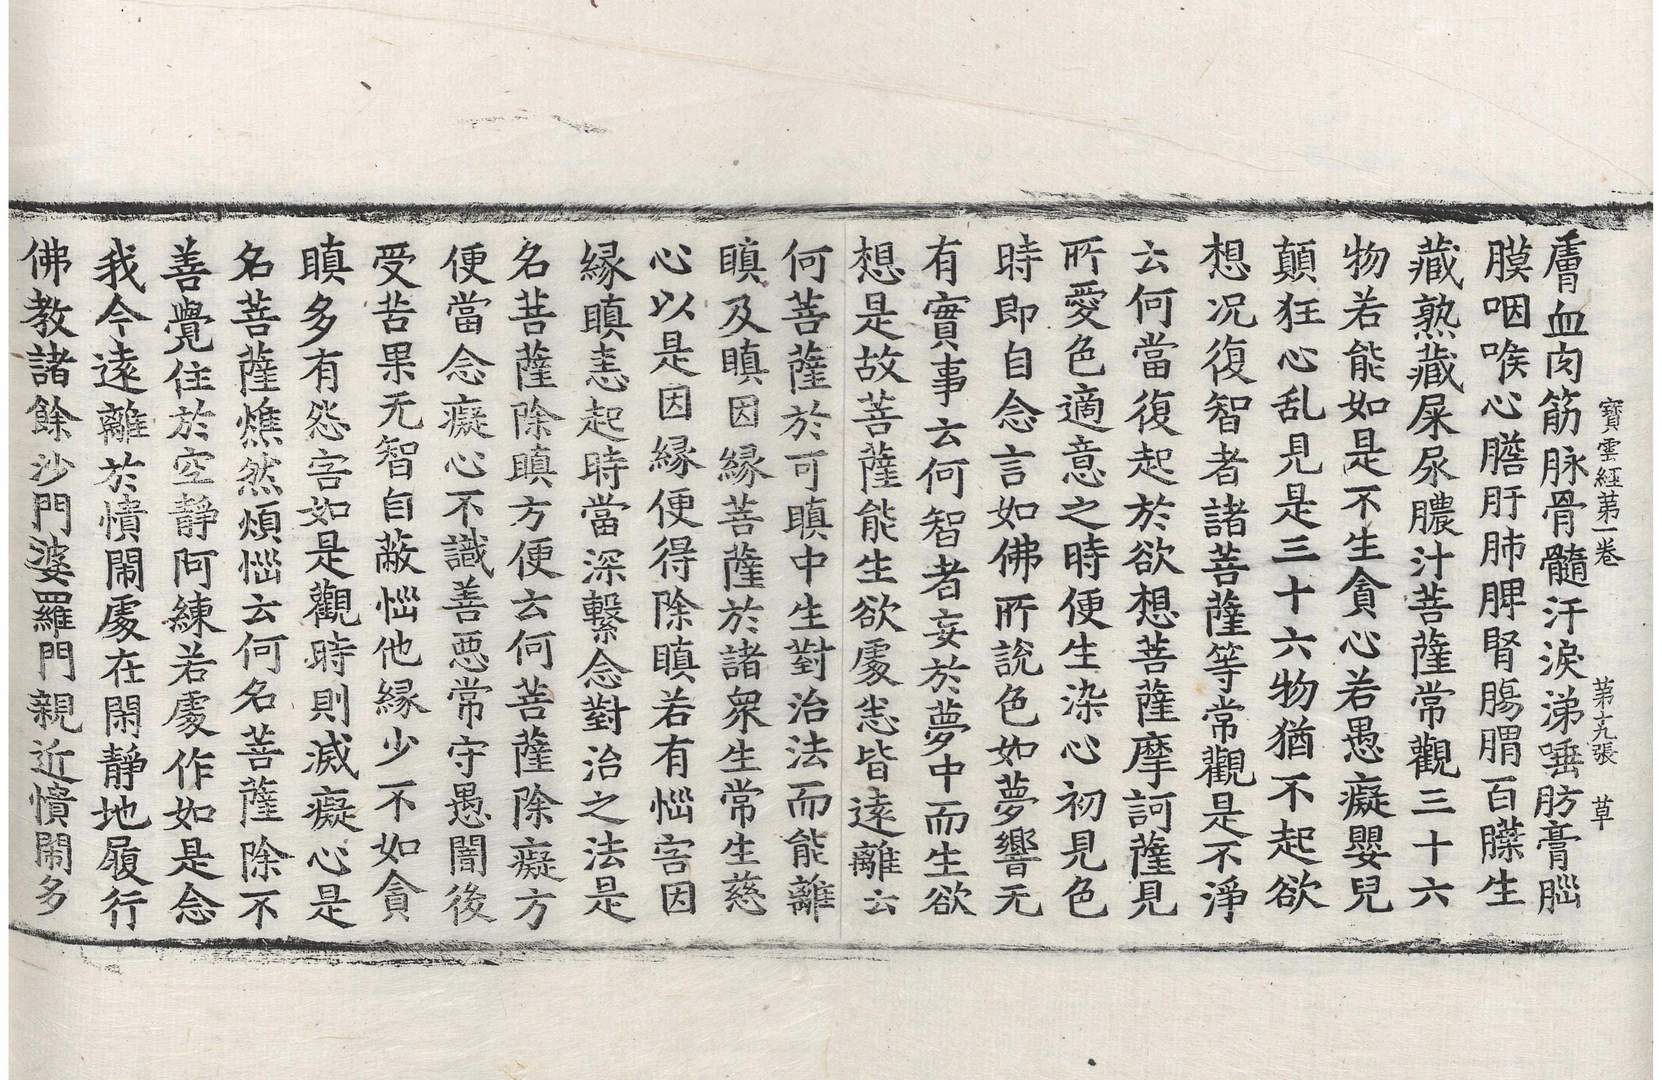 寶雲經第一卷 第十九張 草
膚血肉筋脉骨髓汗淚涕唾肪膏𦛁
膜咽喉心膽肝肺脾腎膓胃百䐿生
藏熟藏屎尿膿汁菩薩常觀三十六
物若能如是不生貪心若愚癡嬰兒
顛狂心乱見是三十六物猶不起欲
想况復智者諸菩薩等常觀是不淨
云何當復起於欲想菩薩摩訶薩見
所愛色適意之時便生染心初見色
時即自念言如佛所說色如夢響无
有實事云何智者妄於夢中而生欲
想是故菩薩能生欲處悉皆遠離云
何菩薩於可瞋中生對治法而能離
瞋及瞋因緣菩薩於諸衆生常生慈
心以是因緣便得除瞋若有惱害因
緣瞋恚起時當深繫念對治之法是
名菩薩除瞋方便云何菩薩除癡方
便當念癡心不識善惡常守愚闇後
受苦果无智自蔽惱他緣少不如貪
瞋多有怨害如是觀時則滅癡心是
名菩薩燋然煩惱云何名菩薩除不
善覺住於空靜阿練若處作如是念
我今遠離於憒閙處在閑靜地履行
佛教諸餘沙門婆羅門親近憒閙多